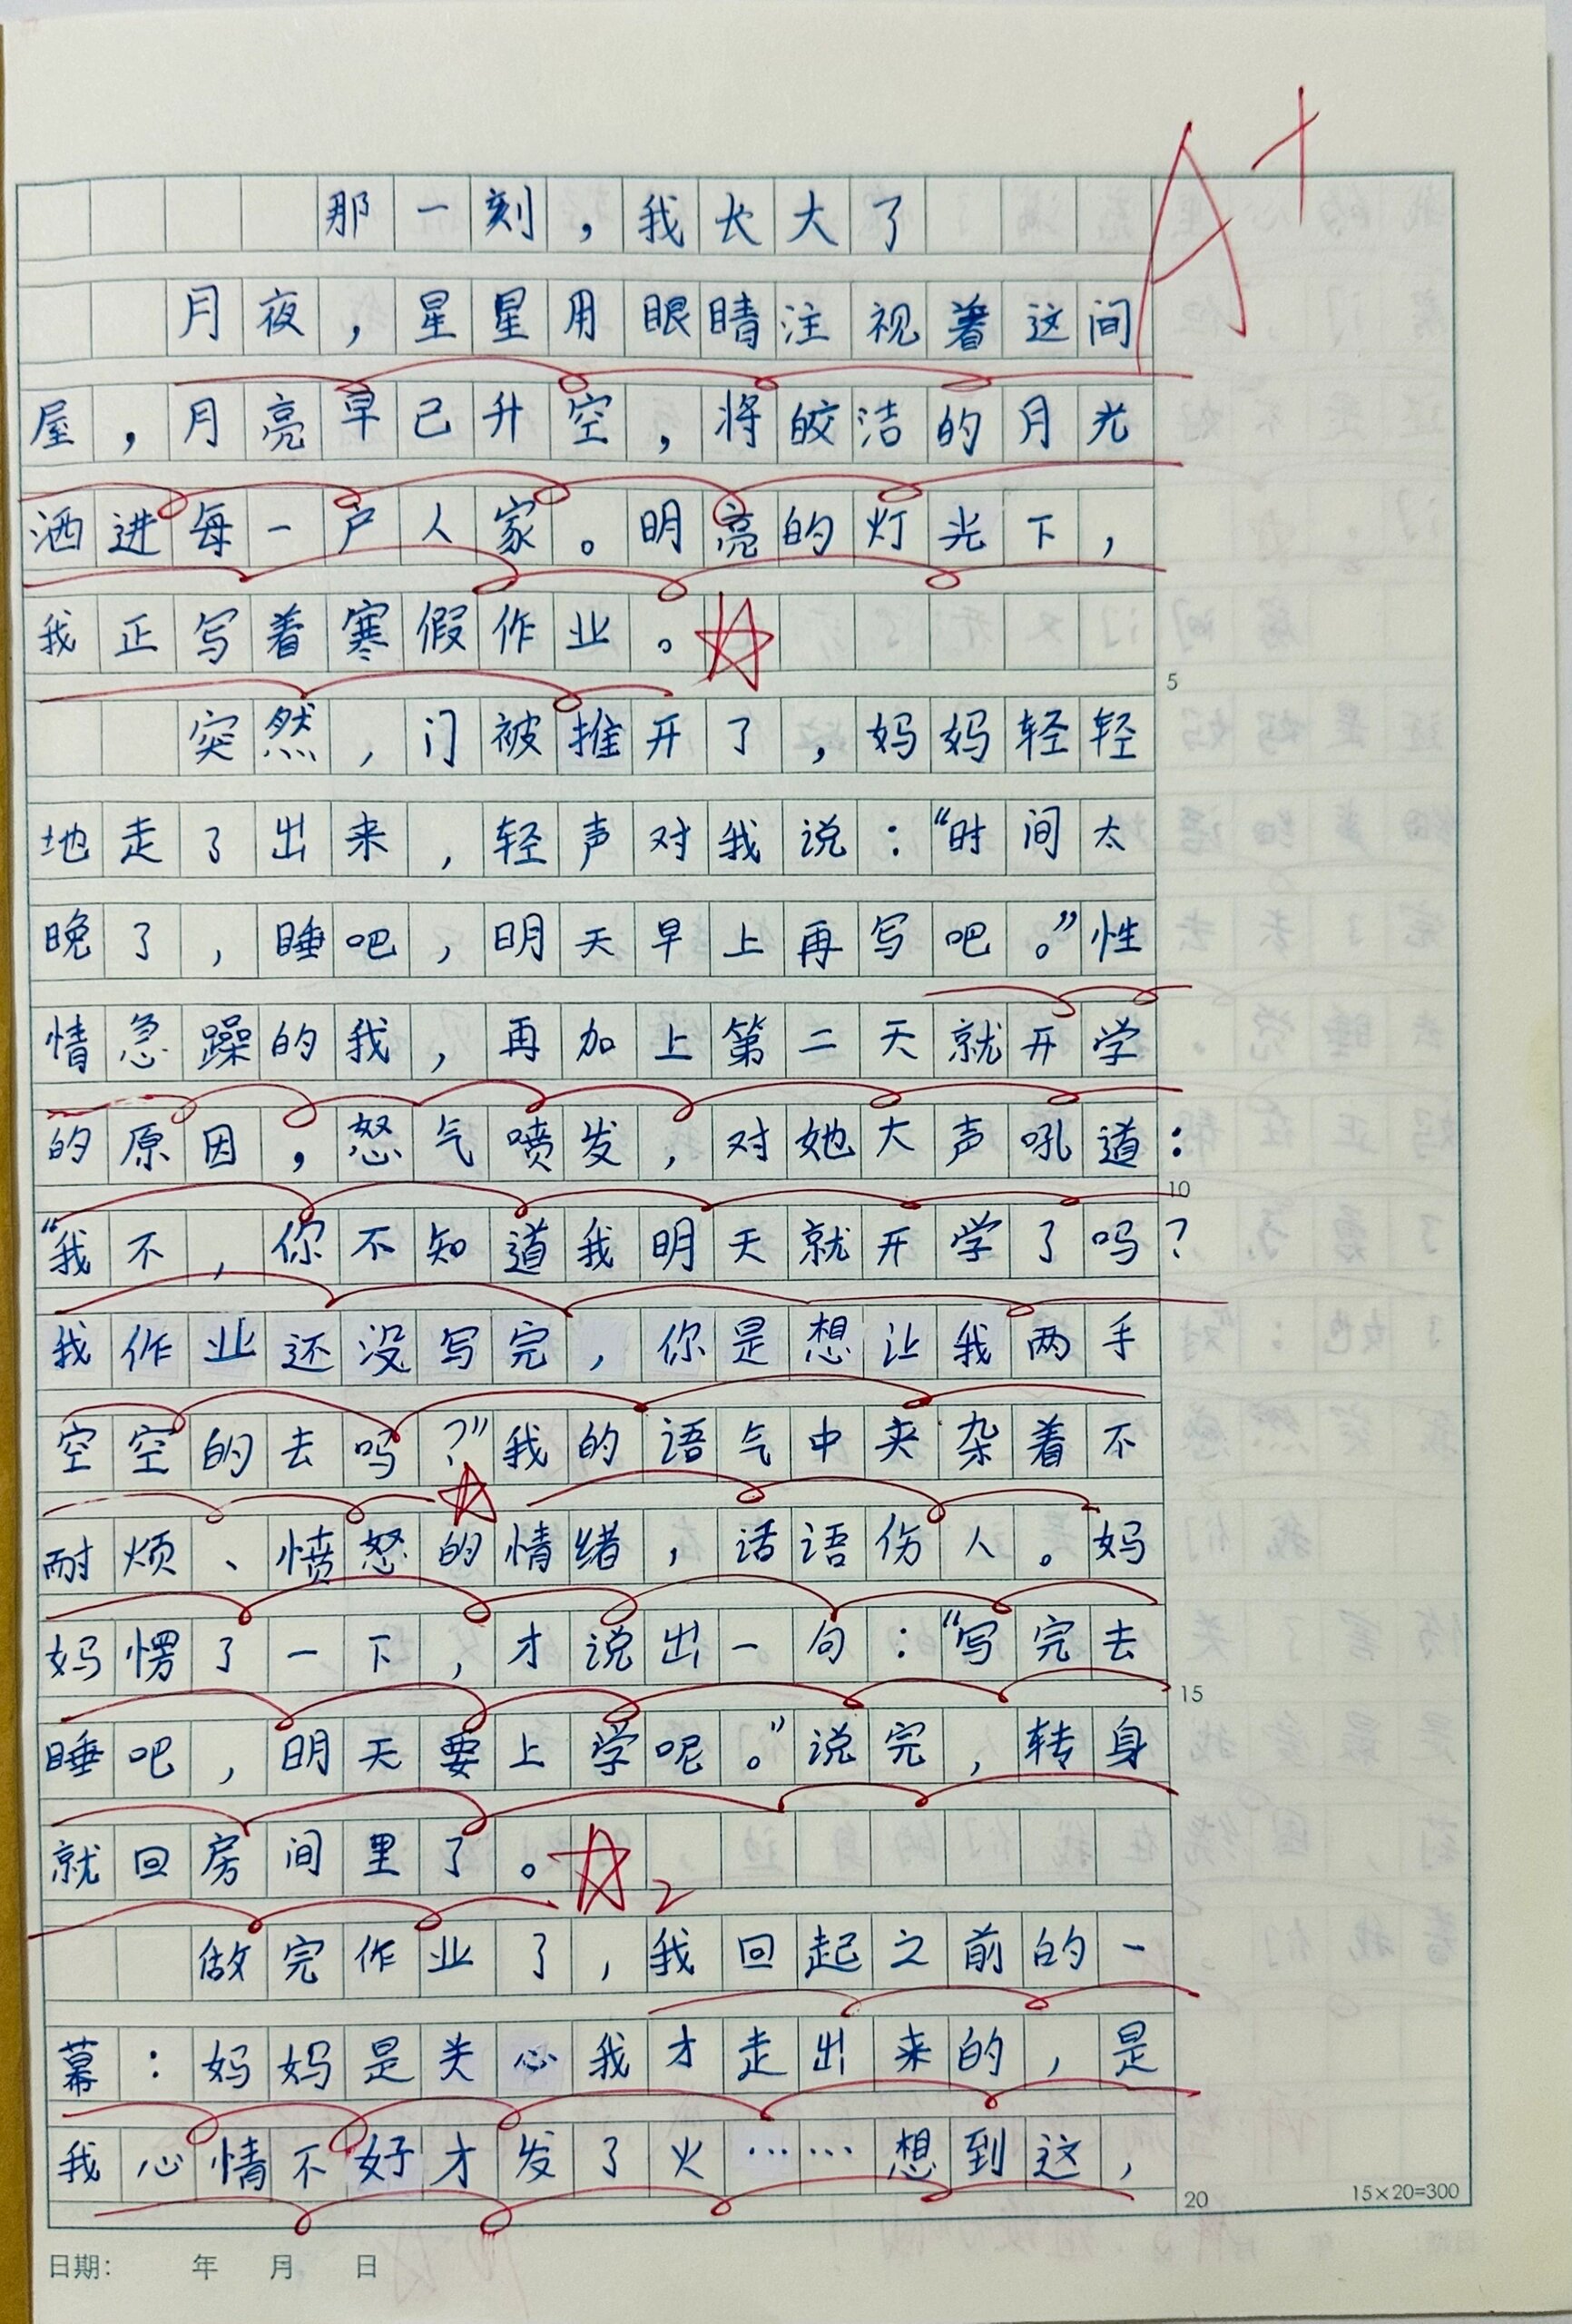 A+
那一刻，我长大了
月夜，星星用眼睛注视着这间
屋，月亮早已升空，将皎洁的月光
洒进每一户人家。明亮的灯光下，
我正写着寒假作业。
5
突然，门被推开了，妈妈轻轻
地走了出来，轻声对我说：“时间太
晚了，睡吧，明天早上再写吧。”性
情急躁的我，再加上第二天就开学
的原因，怒气喷发，对她大声吼道：
10
“我不，你不知道我明天就开学了吗？
我作业还没写完，你是想让我两手
空空的去吗？”我的语气中夹杂着不
耐烦、愤怒的情绪，话语伤人。妈
妈愣了一下，才说出一句：“写完去
15
睡吧，明天要上学呢。”说完，转身
就回房间里了。
2
做完作业了，我回起之前的一
幕：妈妈是关心我才走出来的，是
我心情不好才发了火……想到这，
20
15×20=300
日期： 年 月 日